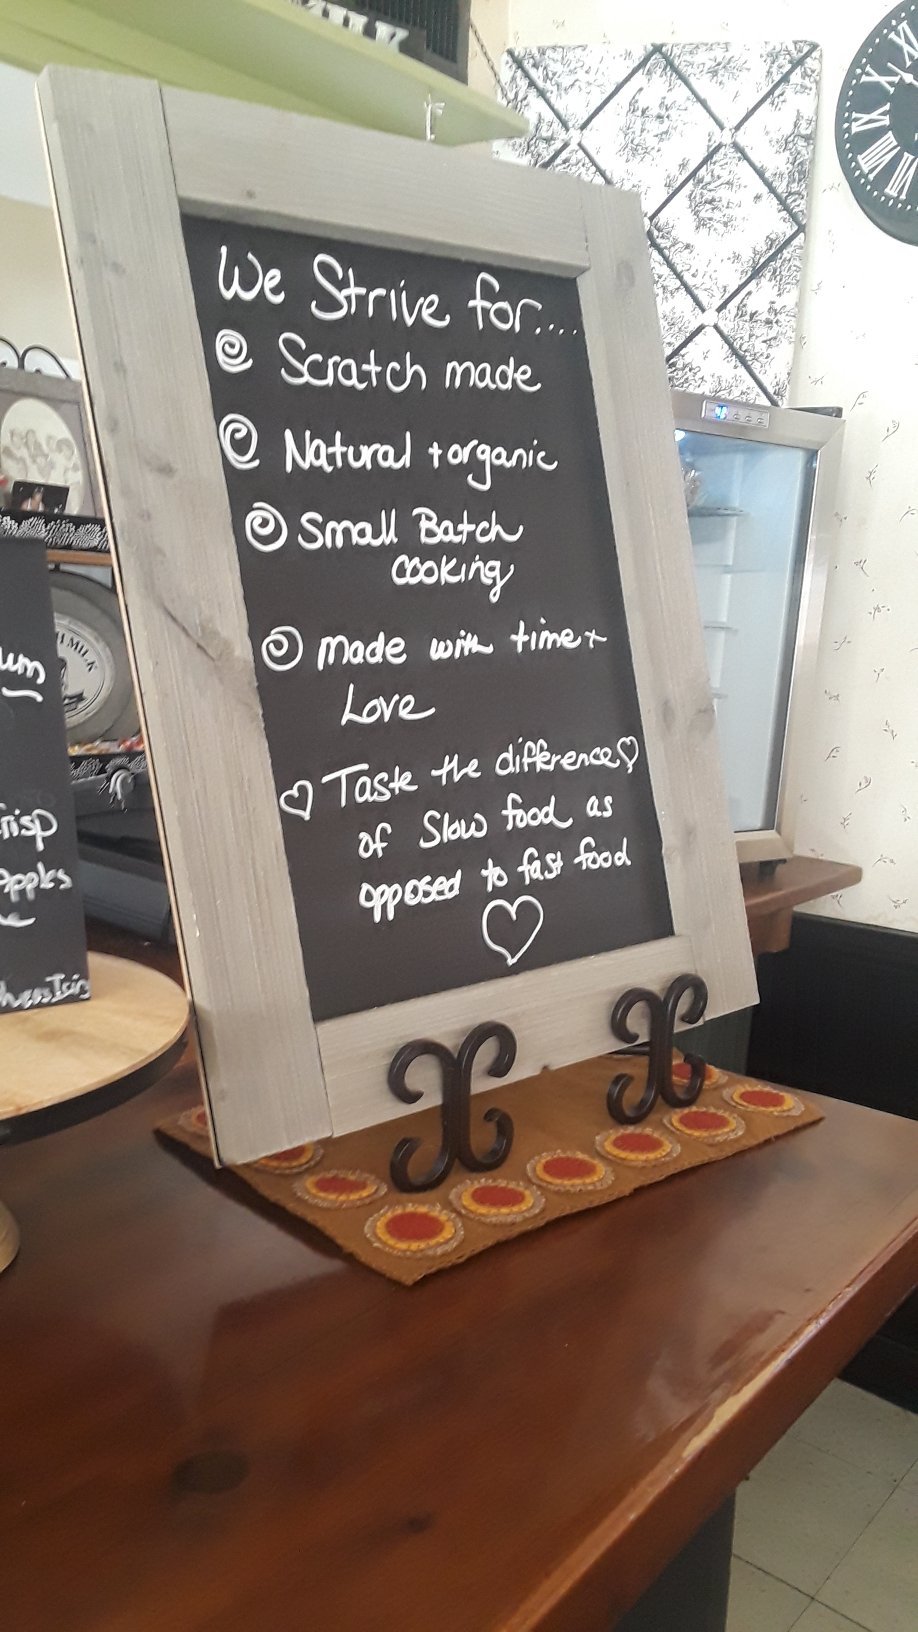 We Strive for....
Scratch made
Natural + organic
Small Batch
cooking
made with time +
Love
Taste the difference
of Slow food as
opposed to fast food
MILK
Apples
XI
X
IX
VIII
VII